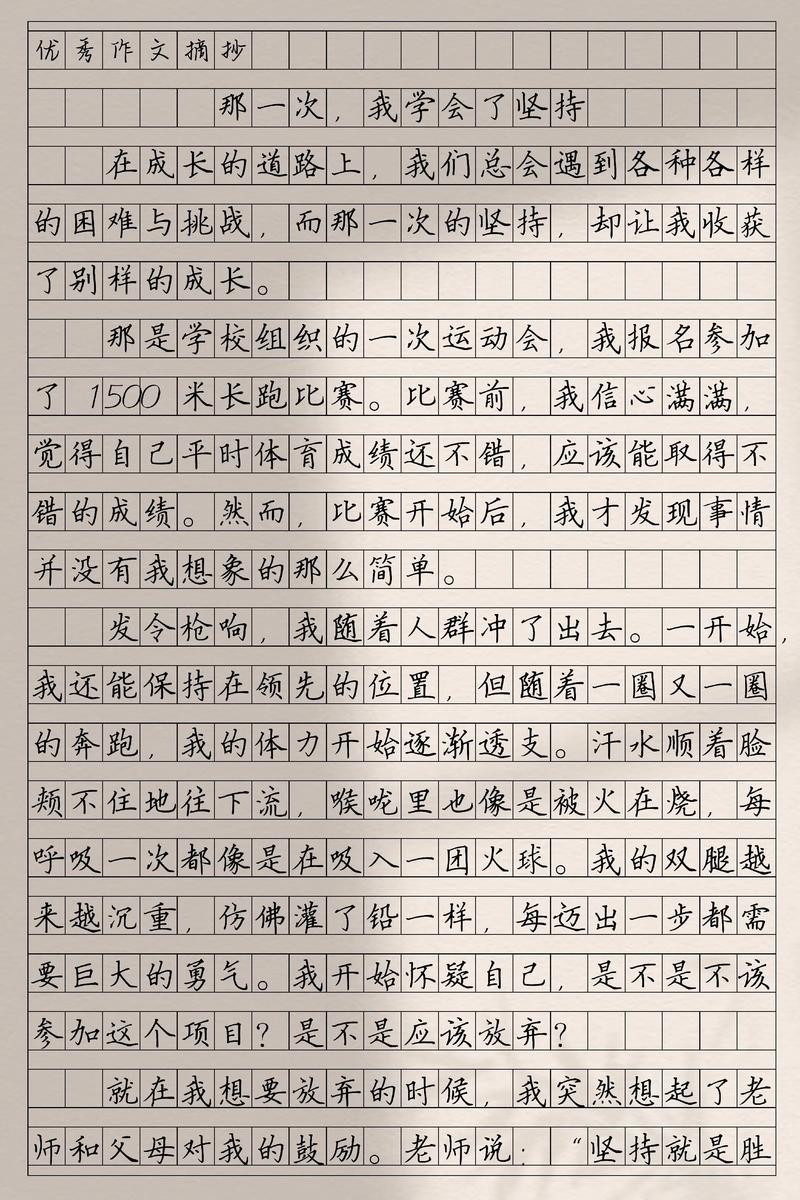 优秀作文摘抄
那一次，我学会了坚持
在成长的道路上，我们总会遇到各种各样
的困难与挑战，而那一次的坚持，却让我收获
了别样的成长。
那是学校组织的一次运动会，我报名参加
了 1500 米长跑比赛。比赛前，我信心满满，
觉得自己平时体育成绩还不错，应该能取得不
错的成绩。然而，比赛开始后，我才发现事情
并没有我想象的那么简单。
发令枪响，我随着人群冲了出去。一开始，
我还能保持在领先的位置，但随着一圈又一圈
的奔跑，我的体力开始逐渐透支。汗水顺着脸
颊不住地往下流，喉咙里也像是被火在烧，每
呼吸一次都像是在吸入一团火球。我的双腿越
来越沉重，仿佛灌了铅一样，每迈出一步都需
要巨大的勇气。我开始怀疑自己，是不是不该
参加这个项目？是不是应该放弃？
就在我想要放弃的时候，我突然想起了老
师和父母对我的鼓励。老师说：“坚持就是胜